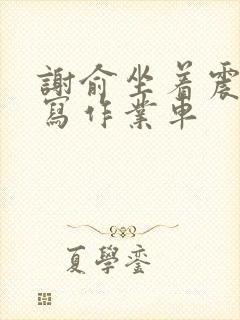 謝俞坐着震
寫作業車
夏學鑾